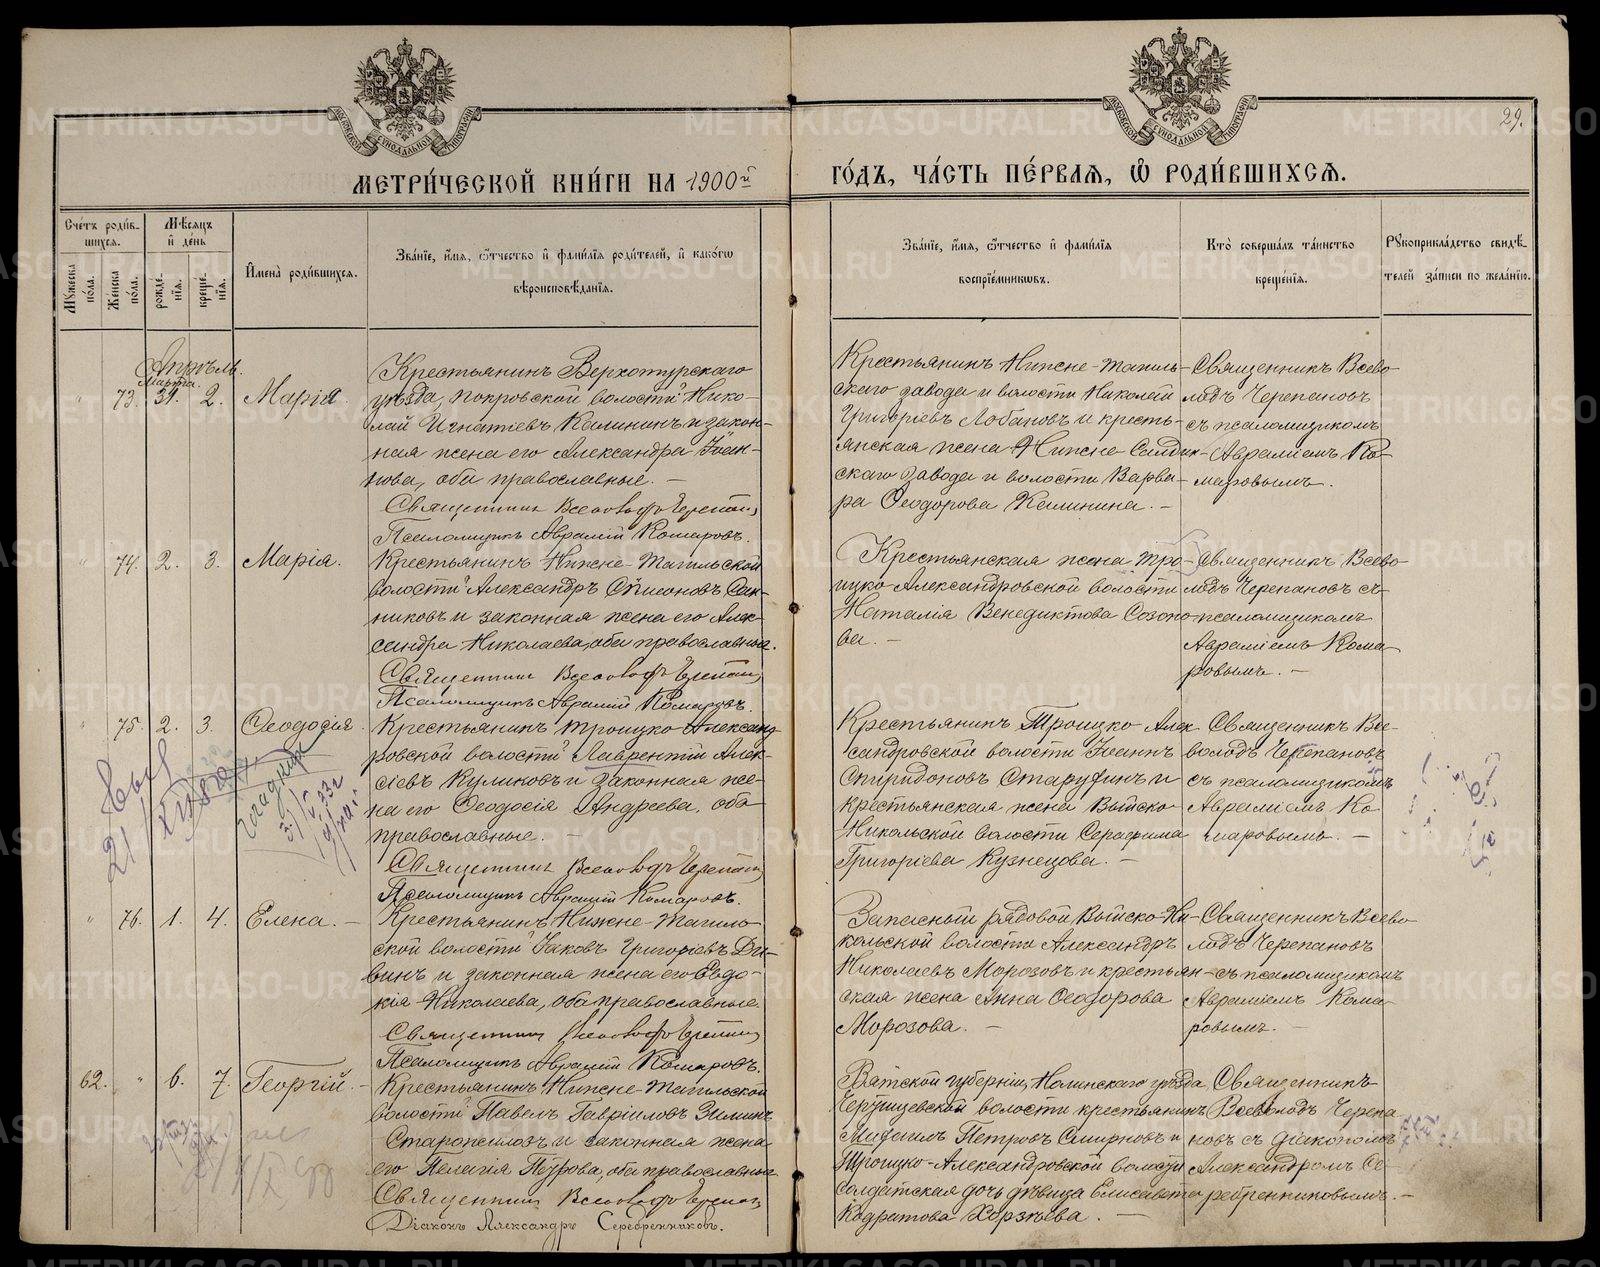 29.
МЕТРИ́ЧЕСКОЙ КНИ́ГИ НА 1900й
ГО́ДЪ, ЧА́СТЬ ПЕ́РВАѦ, Ѡ РОДИ́ВШИХСѦ.
Счетъ роди́вшихсѧ.
Мꙋжеска по́ла.
Женска по́ла.
Мѣсѧцъ и де́нь
рожде́нїѧ.
креще́нїѧ.
Имена̀ роди́вшихсѧ.
Зва́нїе, и́мѧ, ѻ́тчество и фами́лїѧ роди́телей, и како́гѡ
вѣроисповѣ́данїѧ.
Зва́нїе, и́мѧ, ѻ́тчество и фами́лїѧ
воспрїе́мникѡвъ.
Кто̀ соверша́лъ та́инство
креще́нїѧ.
Рꙋкоприкла́дство свидѣ́телей за́писи по жела́нїю.
Апрѣль.
Марта.
" 73. 31. 2. Марія.
Крестьянинъ Верхотурскаго
уѣзда, Покровской волости Нико-
лай Игнатіевъ Калининъ и закон-
ная жена его Александра Іоан-
нова, оба православные. —
Священникъ Всеволодъ Черепановъ
Псаломщикъ Аврамій Комаровъ.
Крестьянинъ Нижне-Тагиль-
скаго завода и волости Николай
Григоріевъ Лобановъ и кресть-
янская жена Нижне Салдин-
скаго завода и волости Варва-
ра Ѳеодорова Калинина. —
Священникъ Всево-
лодъ Черепановъ
съ псаломщикомъ
Авраміемъ Ко-
маровымъ.
" 74. 2. 3. Марія.
Крестьянинъ Нижне-Тагильской
волости Александръ Симеоновъ Сан-
никовъ и законная жена его Алек-
сандра Николаева, оба православные.
Священникъ Всеволодъ Черепановъ
Псаломщикъ Аврамій Комаровъ.
Крестьянская жена Тро-
ицко-Александровской волости
Наталія Венедиктова Созоно-
ва. —
Священникъ Всево-
лодъ Черепановъ съ
псаломщикомъ
Авраміемъ Кома-
ровымъ. —
" 75. 2. 3. Ѳеодосія.
Крестьянинъ Троицко-Александ
ровской волости Лаврентій Алек-
сіевъ Куликовъ и законная же-
на его Ѳеодосія Андреева, оба
православные. —
Священникъ Всеволодъ Черепановъ
Псаломщикъ Аврамій Комаровъ.
Крестьянинъ Троицко Алек
сандровской волости Іоаннъ
Спиридоновъ Старуфинъ и
крестьянская жена Выйско-
Никольской волости Серафима
Григоріева Кузнецова. —
Священникъ Все-
володъ Черепановъ
съ псаломщикомъ
Авраміемъ Ко-
маровымъ. —
" 76. 1. 4. Елена. —
Крестьянинъ Нижне-Тагиль-
ской волости Іаковъ Григоріевъ Ди-
винъ и законная жена его Евдо-
кія Николаева, оба православные.
Священникъ Всеволодъ Черепановъ
Псаломщикъ Аврамій Комаровъ.
Запасный рядовой Выйско-Ни-
кольской волости Александръ
Николаевъ Морозовъ и крестьян-
ская жена Анна Ѳеодорова
Морозова. —
Священникъ Всево
лодъ Черепановъ
съ псаломщикомъ
Авраміемъ Кома-
ровымъ. —
62. " 6. 7. Георгій. —
Крестьянинъ Нижне-Тагильской
волости Павелъ Гавріиловъ Зиминъ
Старожиловъ и законная жена
его Пелагія Петрова, оба православные
Священникъ Всеволодъ Черепановъ
Діаконъ Александръ Серебренниковъ.
Вятской губерніи, Нолинскаго уѣзда
волости крестьянинъ
Михаилъ Петровъ Смирновъ и
Троицко-Александровской волости
солдатская дочь дѣвица Елисавета
Кодратова Хорзѣева. —
Священникъ
Всеволодъ Черепа
новъ съ діакономъ
Александромъ Се-
ребренниковымъ. —